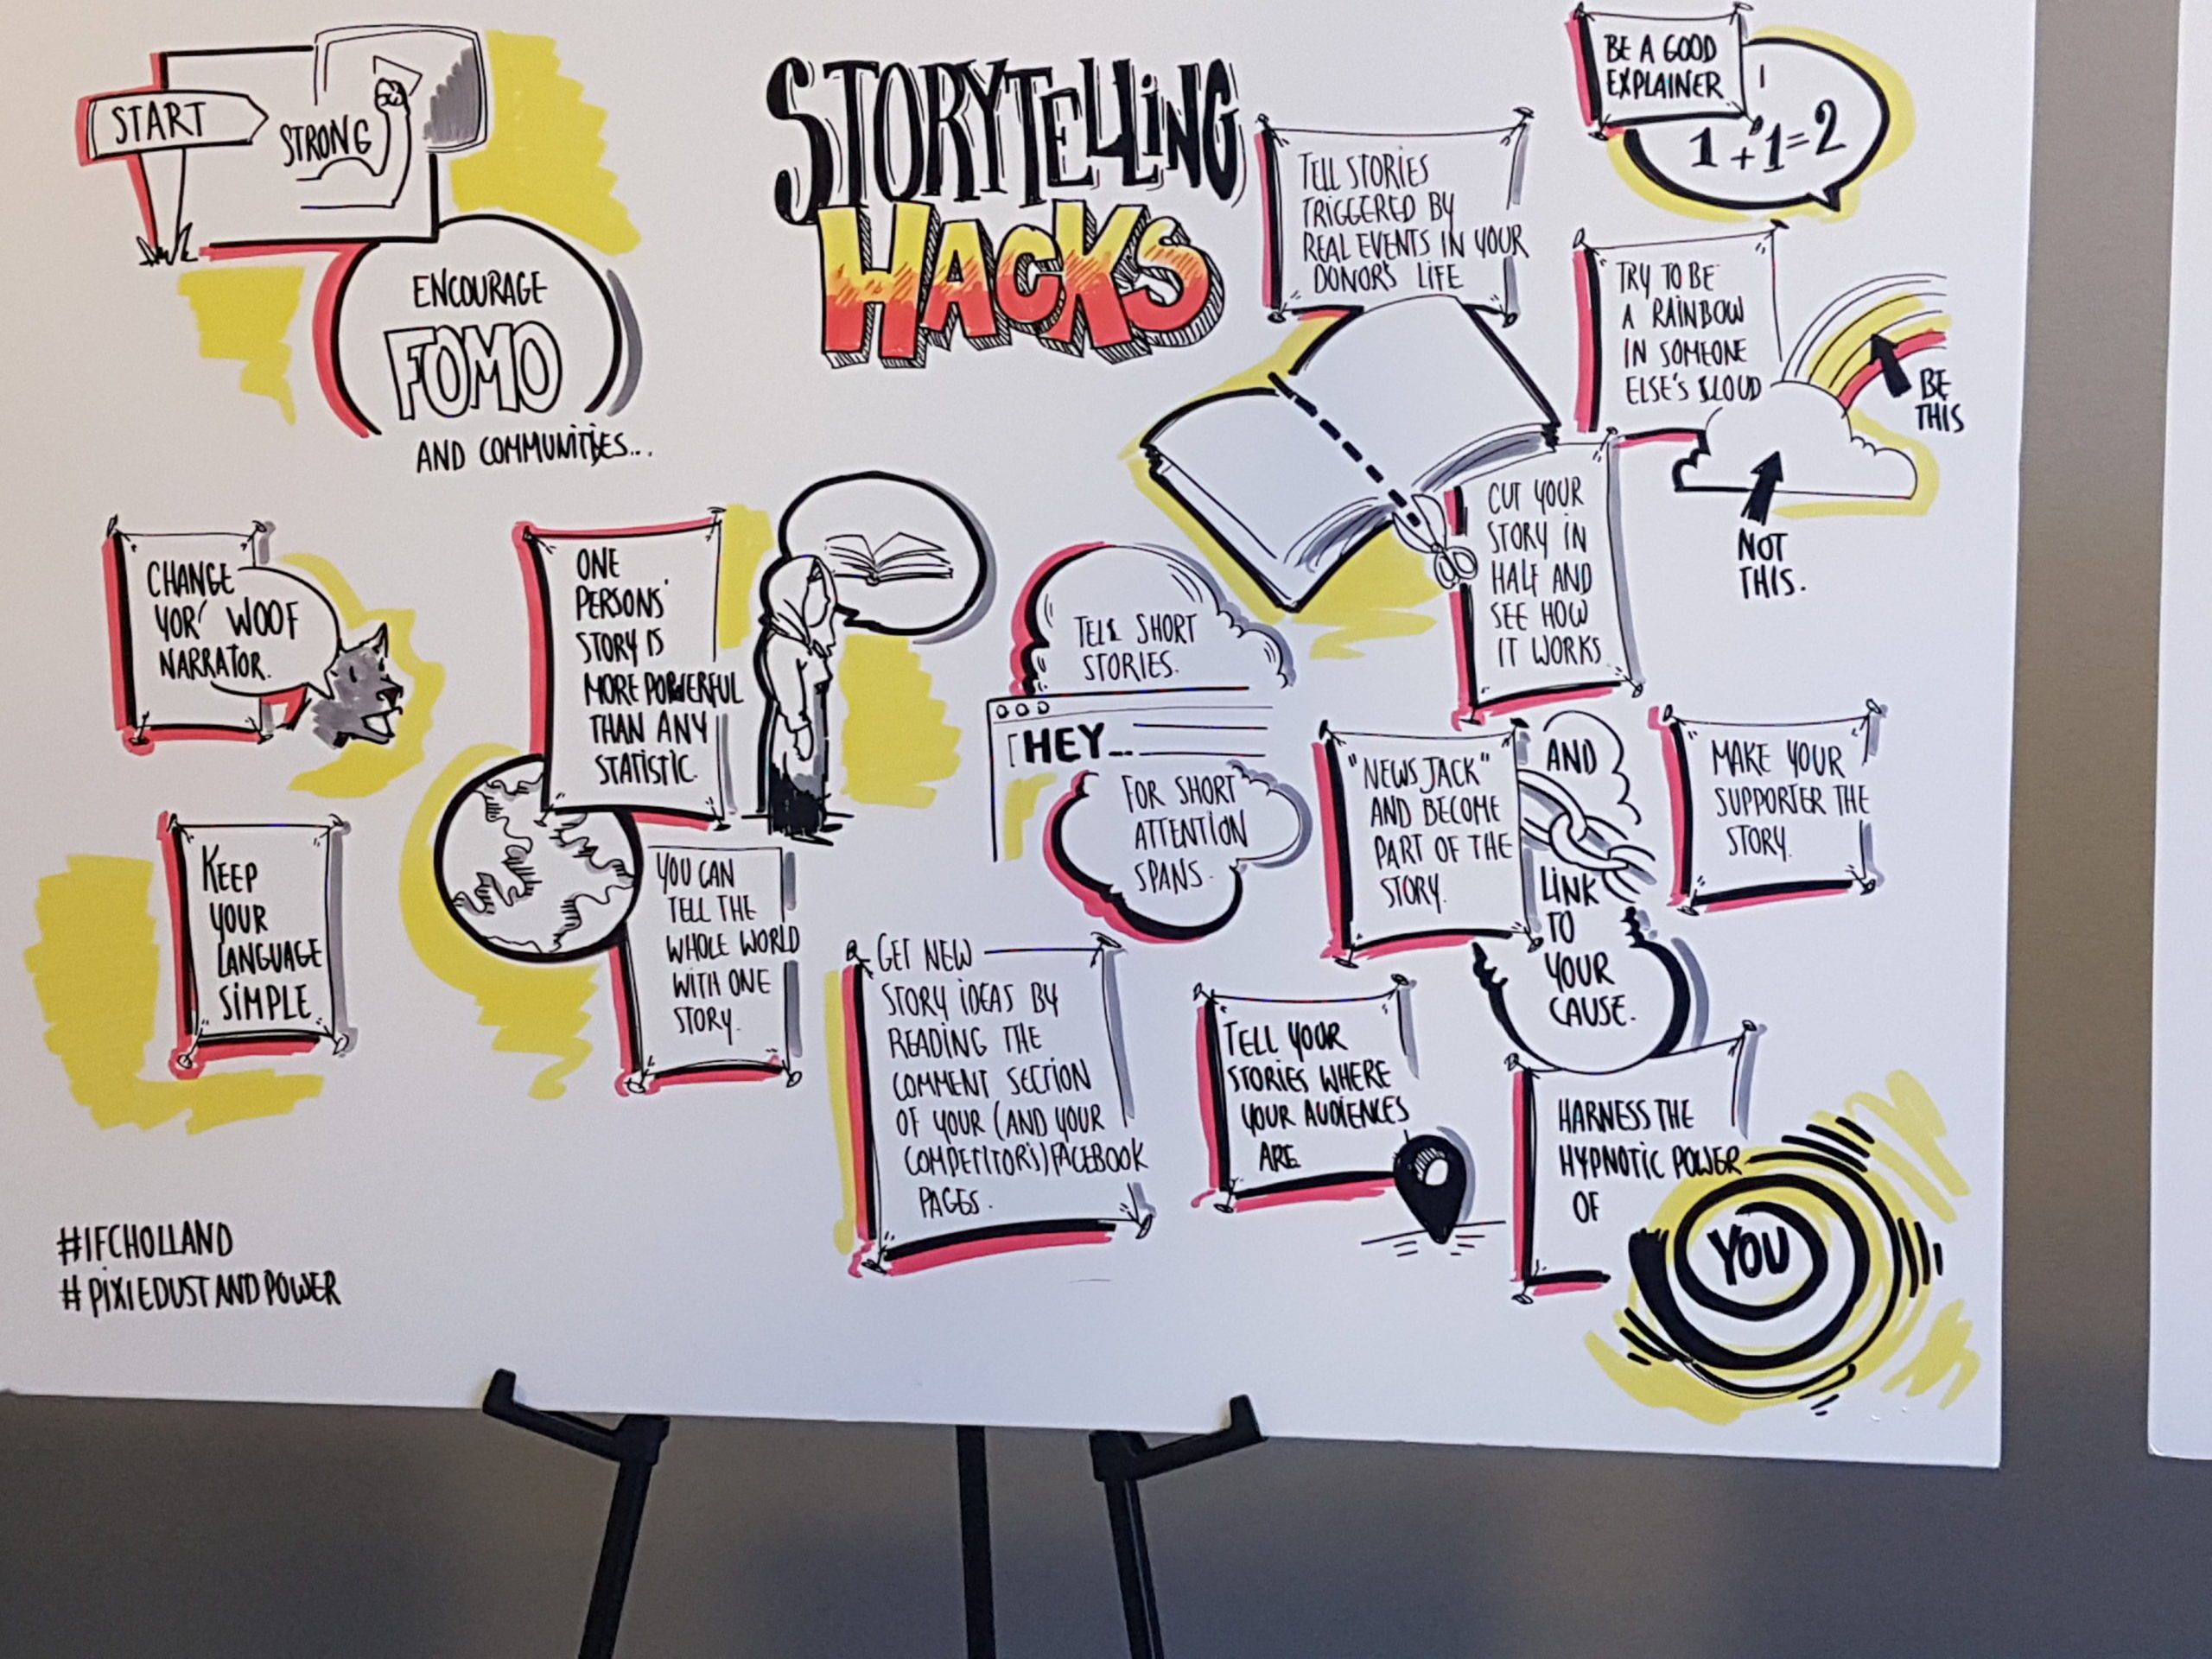 START
STRONG
ENCOURAGE
FOMO
AND COMMUNITIES...
STORYTELLING
HACKS
TELL STORIES
TRIGGERED BY
REAL EVENTS IN YOUR
DONOR'S LIFE
BE A GOOD
EXPLAINER
1+1=2
TRY TO BE
A RAINBOW
IN SOMEONE
ELSE'S CLOUD
BE
THIS
NOT
THIS.
CUT YOUR
STORY IN
HALF AND
SEE HOW
IT WORKS
CHANGE
YOR'
NARRATOR.
WOOF
ONE
PERSONS'
STORY IS
MORE POWERFUL
THAN ANY
STATISTIC.
TELL SHORT
STORIES.
HEY...
FOR SHORT
ATTENTION
SPANS.
"NEWSJACK"
AND BECOME
PART OF THE
STORY.
AND
LINK
TO
YOUR
CAUSE.
MAKE YOUR
SUPPORTER THE
STORY.
KEEP
YOUR
LANGUAGE
SIMPLE
YOU CAN
TELL THE
WHOLE WORLD
WITH ONE
STORY.
GET NEW
STORY IDEAS BY
READING THE
COMMENT SECTION
OF YOUR (AND YOUR
COMPETITOR'S) FACEBOOK
PAGES.
TELL YOUR
STORIES WHERE
YOUR AUDIENCES
ARE
HARNESS THE
HYPNOTIC POWER
OF
YOU
#IFCHOLLAND
#PIXIEDUSTANDPOWER